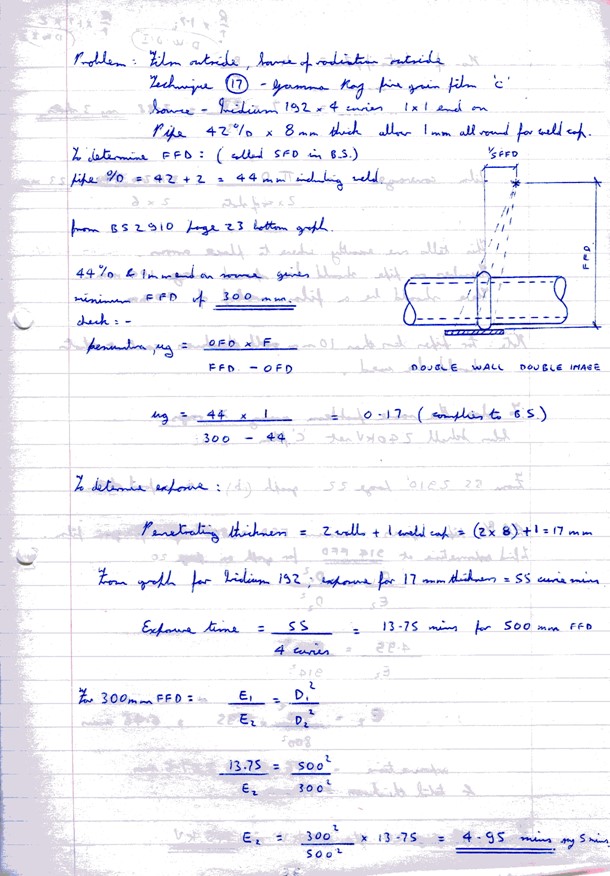 Problem : Film outside, Source of radiation outside
Technique 17 - Gamma Ray fine grain film 'C'
Source - Iridium 192 x 4 curies 1x1 end on
Pipe 42 O/D x 8 mm thick allow 1mm all round for weld cap.
To determine FFD : ( called SFD in B.S.)
pipe O/D = 42 + 2 = 44 mm including weld.
1/5 FFD
from BS 2910 page 23 bottom graph.
44 O/D & 1mm end on source gives
minimum FFD of 300 mm.
FFD
check : -
penumbra, ug = OFD x F
FFD - OFD
DOUBLE WALL DOUBLE IMAGE
ug = 44 x 1 = 0.17 ( complies to BS.)
300 - 44
To determine exposure :
Penetrating thickness = 2 walls + 1 weld cap = (2 x 8) + 1 = 17 mm
From graph for Iridium 192, exposure for 17 mm thickness = 55 curie mins
Exposure time = 55 = 13.75 mins for 500 mm FFD
4 curies
For 300mm FFD = E₁ = D₁²
E₂ D₂²
13.75 = 500²
E₂ 300²
E₂ = 300² x 13.75 = 4.95 mins say 5 mins.
500²